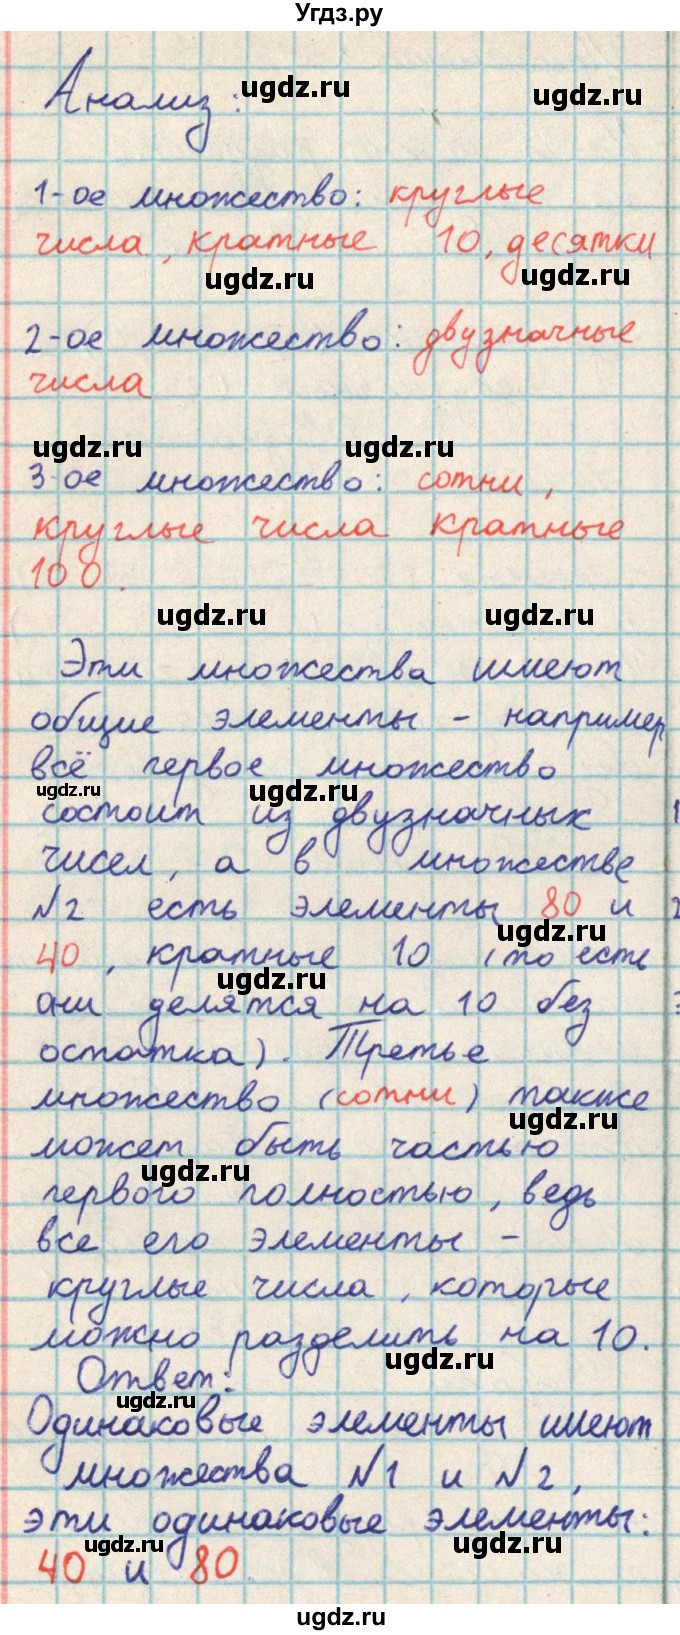 Угдз.ру
Анализ:
ugdz.ru
ugdz.ru
1-ое множество: круглые
числа, кратные 10, десятки
ugdz.ru
ugdz.ru
2-ое множество: двузначные
числа
ugdz.ru
ugdz.ru
3-ое множество: сотни,
круглые числа кратные
100.
ugdz.ru
ugdz.ru
Эти множества имеют
общие элементы - например
всё первое множество
ugdz.ru
ugdz.ru
состоит из двузначных
чисел, а в множестве
№2 есть элементы 80 и
ugdz.ru
40, кратные 10 (то есть
ugdz.ru
они делятся на 10 без
остатка). Третье
множество (сотни) также
ugdz.ru
может быть частью
ugdz.ru
первого полностью, ведь
все его элементы -
круглые числа, которые
можно разделить на 10.
ugdz.ru
Ответ:
ugdz.ru
Одинаковые элементы имеют
множества №1 и №2,
эти одинаковые элементы:
ugdz.ru
ugdz.ru
40 и 80
ugdz.ru